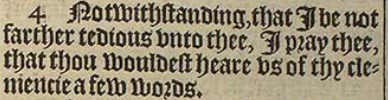 4 Notwithstanding, that I be not
farther tedious vnto thee, I pray thee,
that thou wouldest heare vs of thy cle-
mencie a few words.